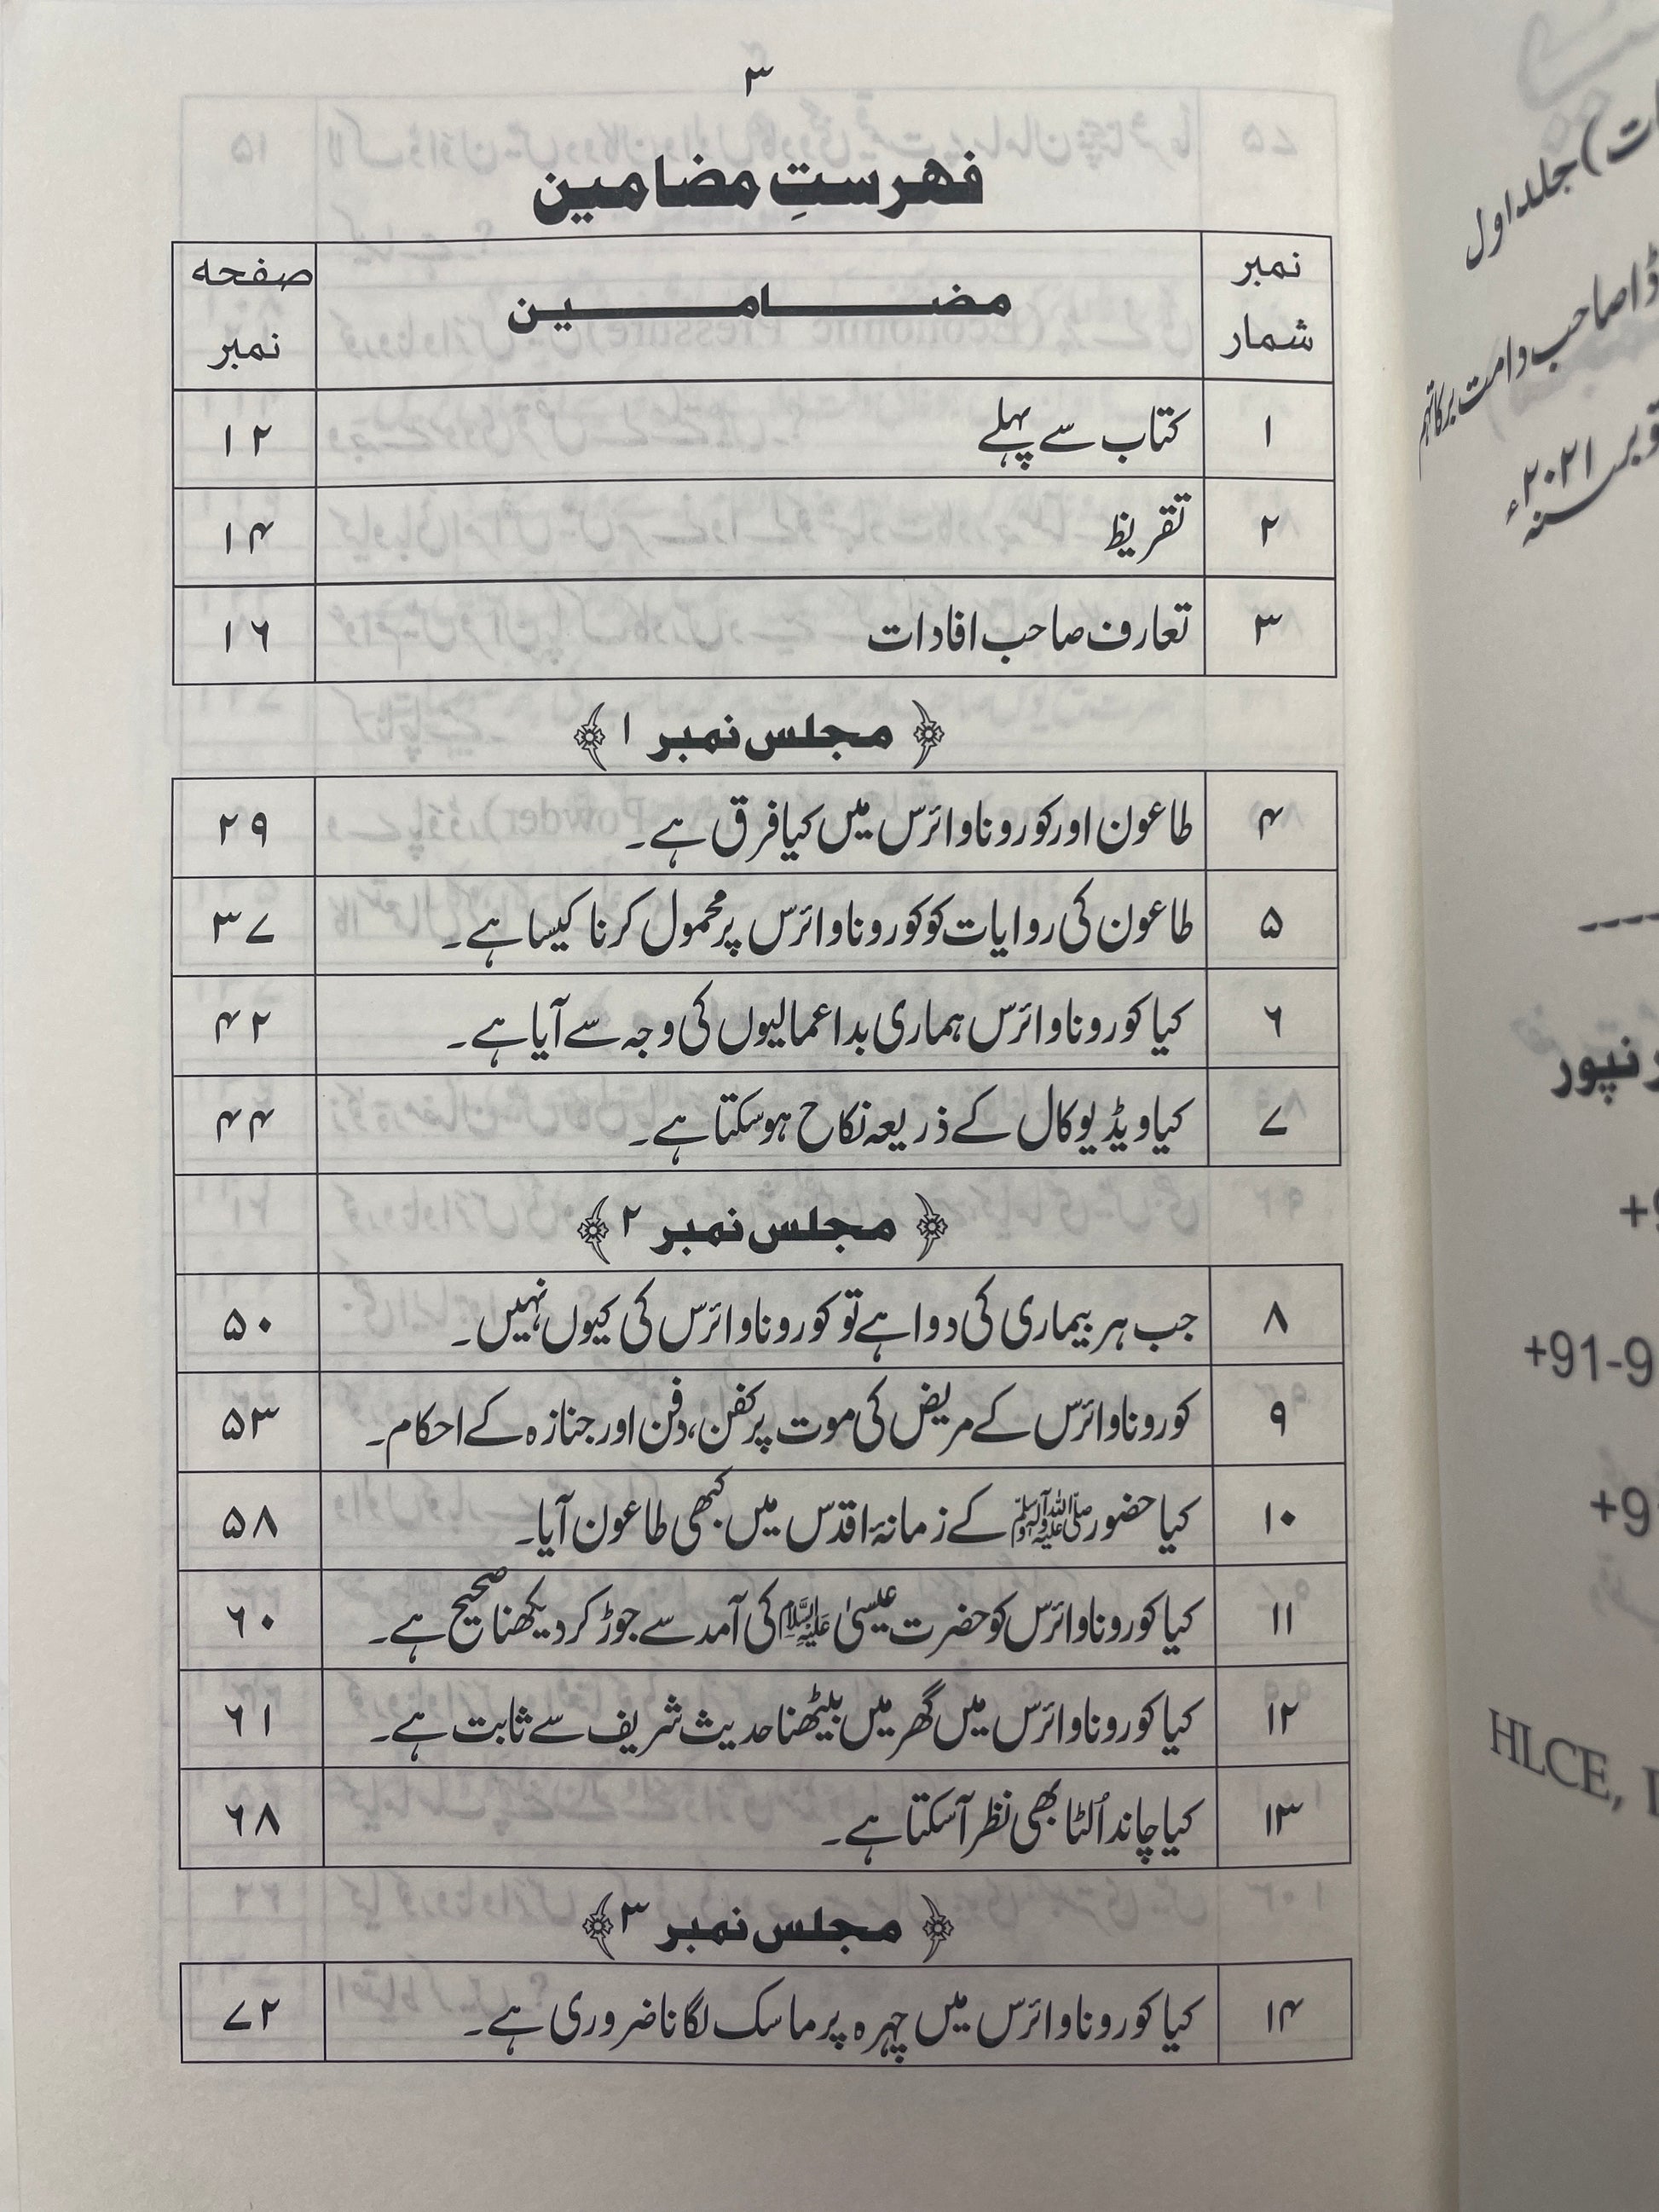 ۳
فهرستِ مضامین
نمبر شمار مضامین صفحہ نمبر
۱ کتاب سے پہلے ۱۲
۲ تقریظ ۱۴
۳ تعارف صاحب افادات ۱۶
﴿ مجلس نمبر ۱ ﴾
۴ طاعون اور کورونا وائرس میں کیا فرق ہے۔ ۲۹
۵ طاعون کی روایات کو کورونا وائرس پر محمول کرنا کیسا ہے۔ ۳۷
۶ کیا کورونا وائرس ہماری بداعمالیوں کی وجہ سے آیا ہے۔ ۴۲
۷ کیا ویڈیو کال کے ذریعہ نکاح ہوسکتا ہے۔ ۴۴
﴿ مجلس نمبر ۲ ﴾
۸ جب ہر بیماری کی دوا ہے تو کورونا وائرس کی کیوں نہیں۔ ۵۰
۹ کورونا وائرس کے مریض کی موت پر کفن، دفن اور جنازہ کے احکام۔ ۵۳
۱۰ کیا حضور ﷺ کے زمانۂ اقدس میں کبھی طاعون آیا۔ ۵۸
۱۱ کیا کورونا وائرس کو حضرت عیسیٰ علیہ السلام کی آمد سے جوڑ کر دیکھنا صحیح ہے۔ ۶۰
۱۲ کیا کورونا وائرس میں گھر میں بیٹھنا حدیث شریف سے ثابت ہے۔ ۶۱
۱۳ کیا چاند اُلٹا بھی نظر آسکتا ہے۔ ۶۸
﴿ مجلس نمبر ۳ ﴾
۱۴ کیا کورونا وائرس میں چہرہ پر ماسک لگانا ضروری ہے۔ ۷۲
جلد اول
صاحب دامت برکاتہم
سنہ ۲۰۲۱ء
+91-9
+9
HLCE,